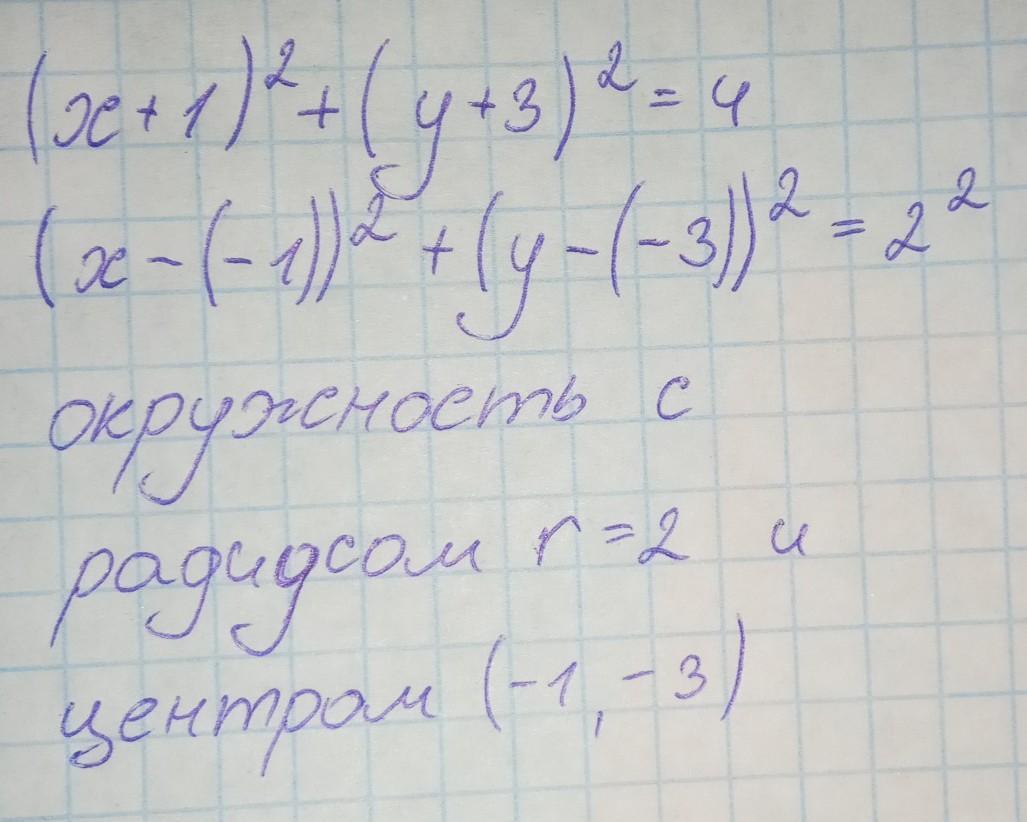 (x+1)²+(y+3)²=4
(x-(-1))²+(y-(-3))²=2²
окружность с
радидсом r=2 и
центром (-1,-3)